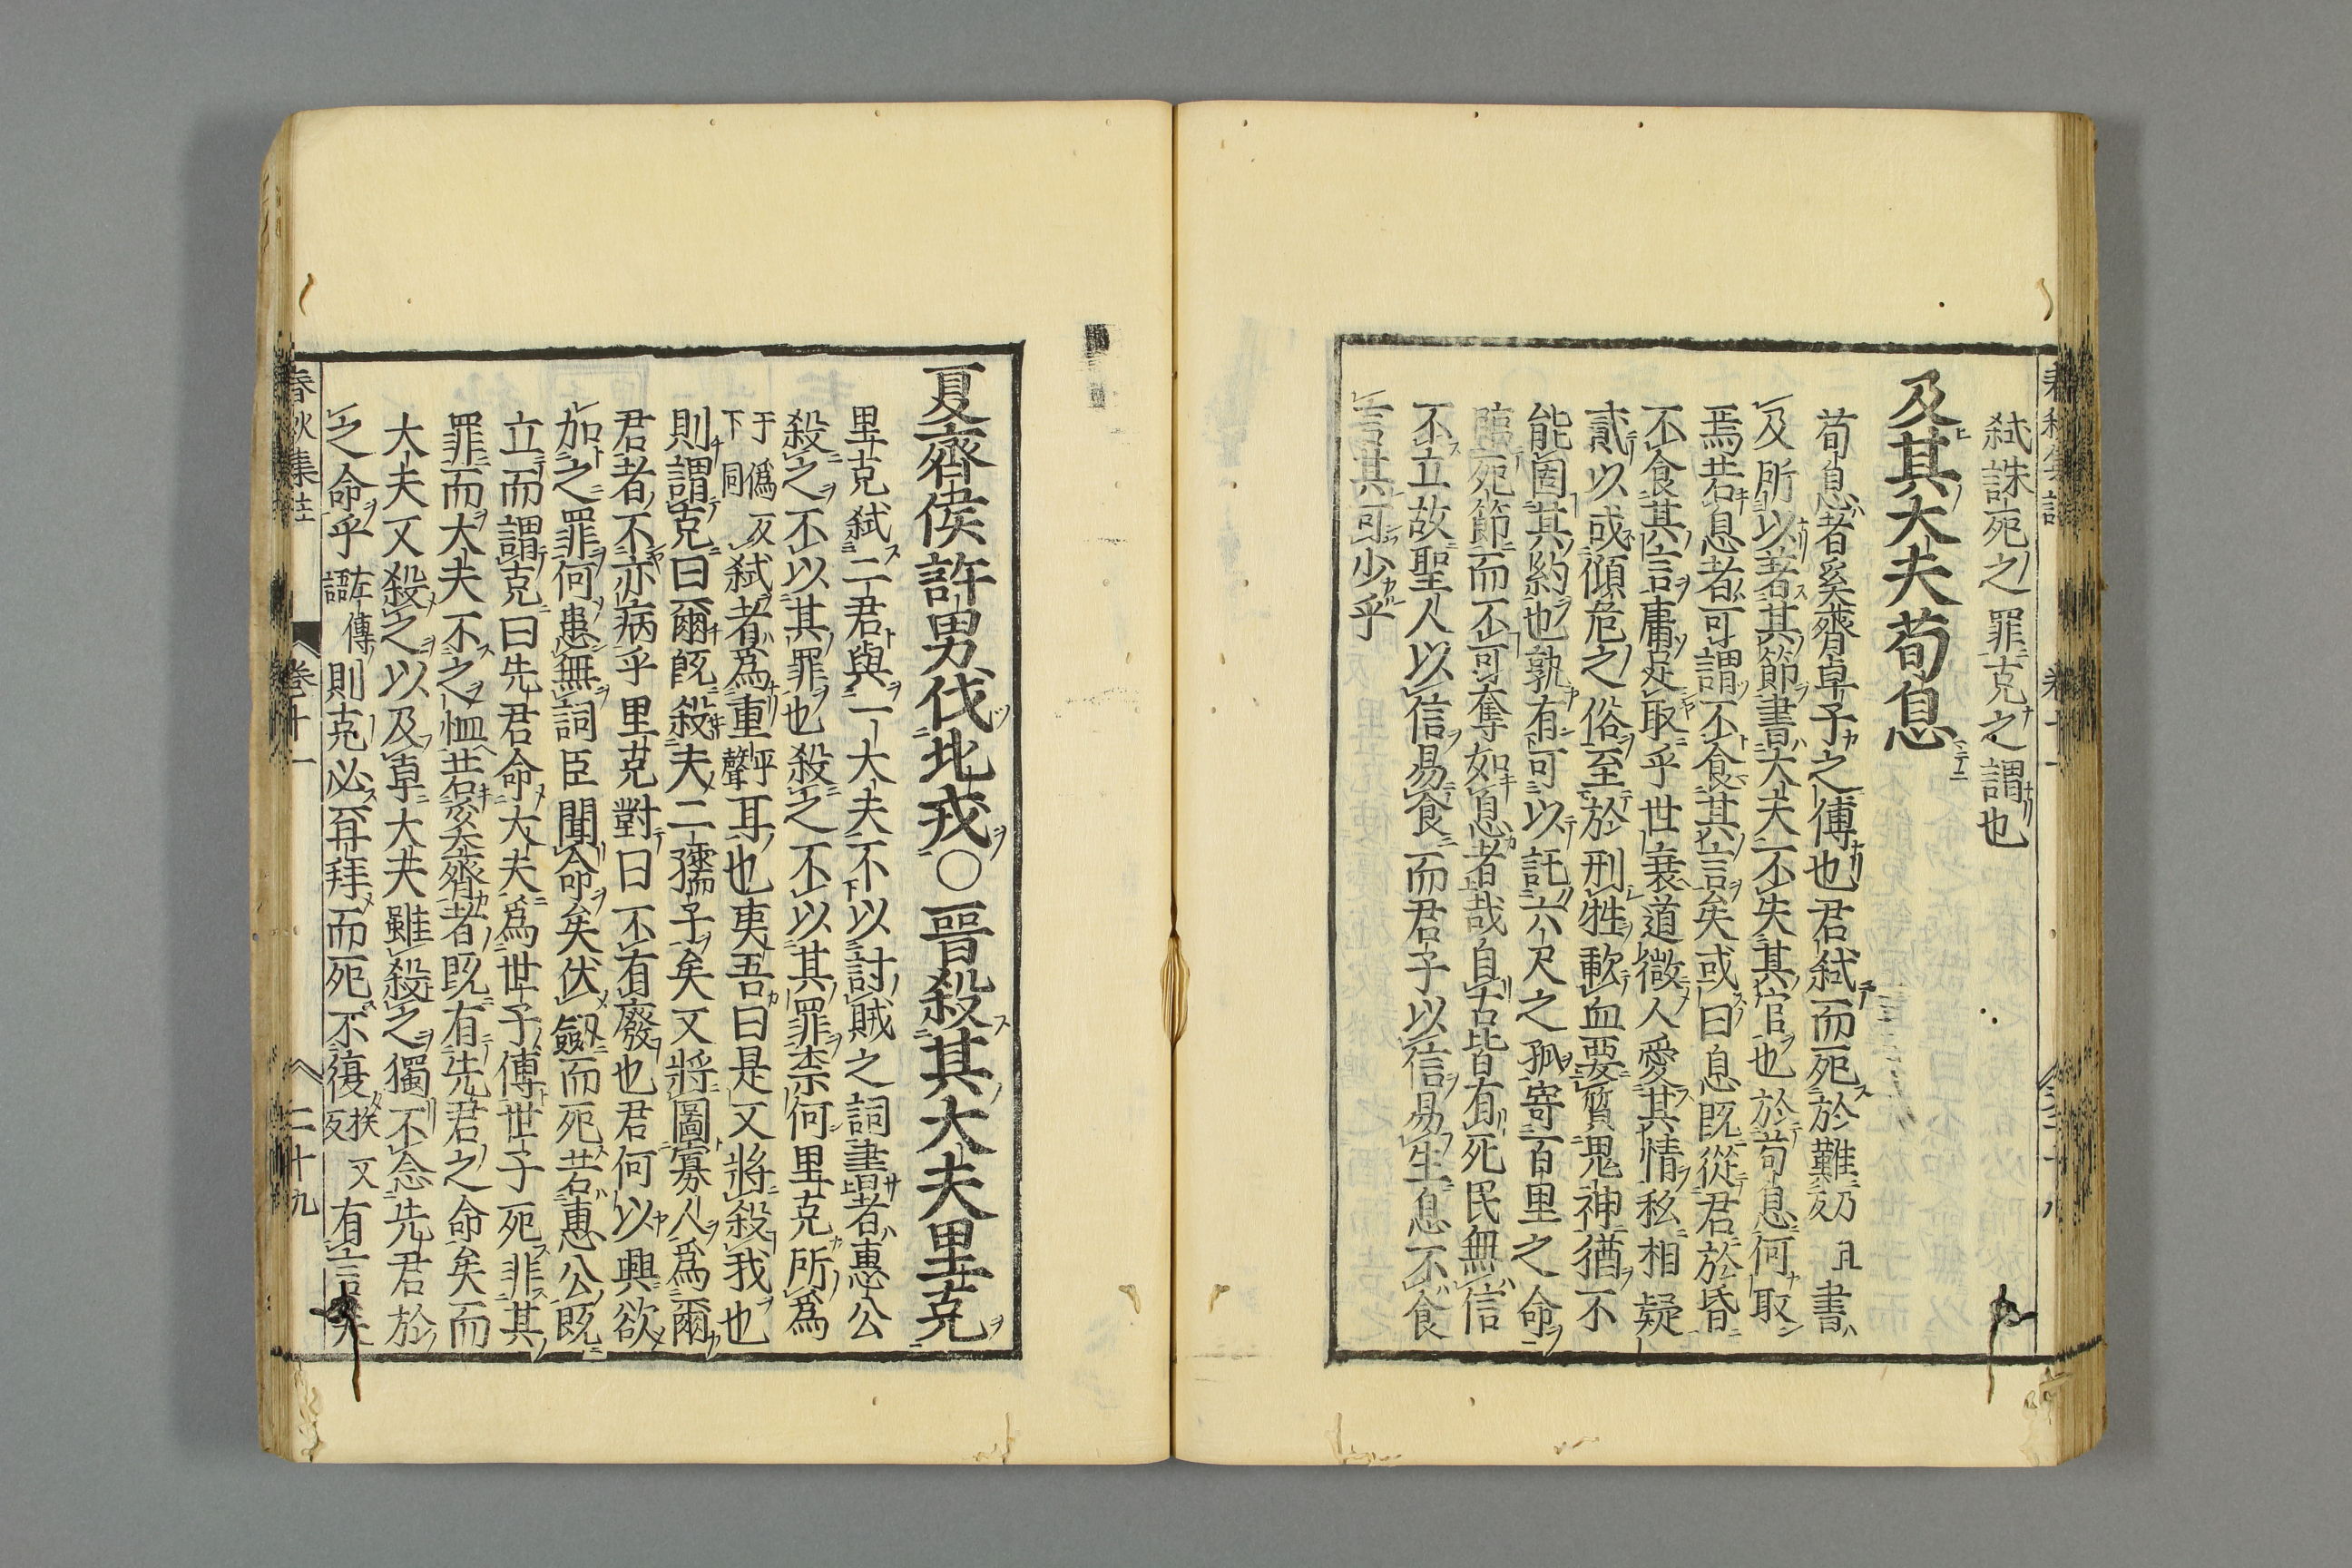 弑誅死之罪克之謂也
及其大夫荀息
荀息者奚齊卓子之傅也君弑而死於難乃旦反書
及所以著其節書大夫不失其官也於荀息何取
焉若息者可謂不食其言矣或曰息既從君於昏
不食其言庸足取乎世衰道微人愛其情私相疑
貳以或傾危之俗至於刑牲歃血要質鬼神猶不
能固其約也孰有可以託六尺之孤寄百里之命
臨死節而不可奪如息者哉自古皆有死民無信
不立故聖人以信易食而君子以信易生息不食
言其可少乎
夏齊侯許男伐北戎○晉殺其大夫里克
里克弑二君與一大夫不以討賊之詞書者惠公
殺之不以其罪也殺之不以其罪柰何里克所爲
于僞反下同弑者爲重平聲耳也夷吾曰是又將殺我也
則謂克曰爾既殺夫二孺子矣又將圖寡人爲爾
君者不亦病乎里克對曰不有廢也君何以興欲
加之罪何患無詞臣聞命矣伏劔而死若惠公既
立而謂克曰先君命大夫爲世子傅世子死非其
罪而大夫不之恤若奚齊者既有先君之命矣而
大夫又殺之以及卓大夫雖殺之獨不念先君於
之命乎左傳語則克必再拜而死不復扶又反有言矣
春秋集註 卷十一 二十九